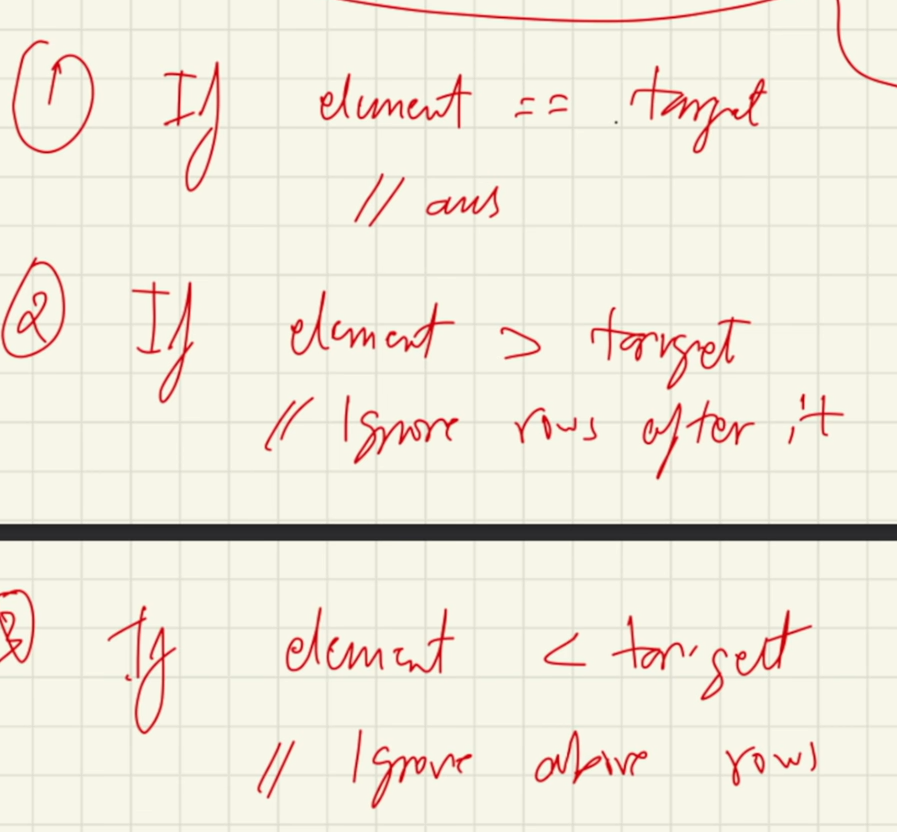 ① If element == target
// ans
② If element > target
// Ignore rows after it
③ If element < target
// Ignore above rows